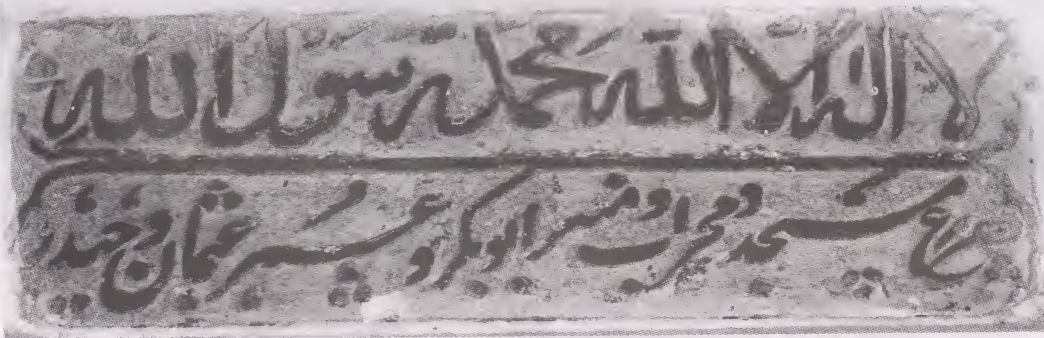 لا اله الا الله محمد رسول الله
چراغ مسجد و محراب و منبر ابوبکر و عمر عثمان و حیدر